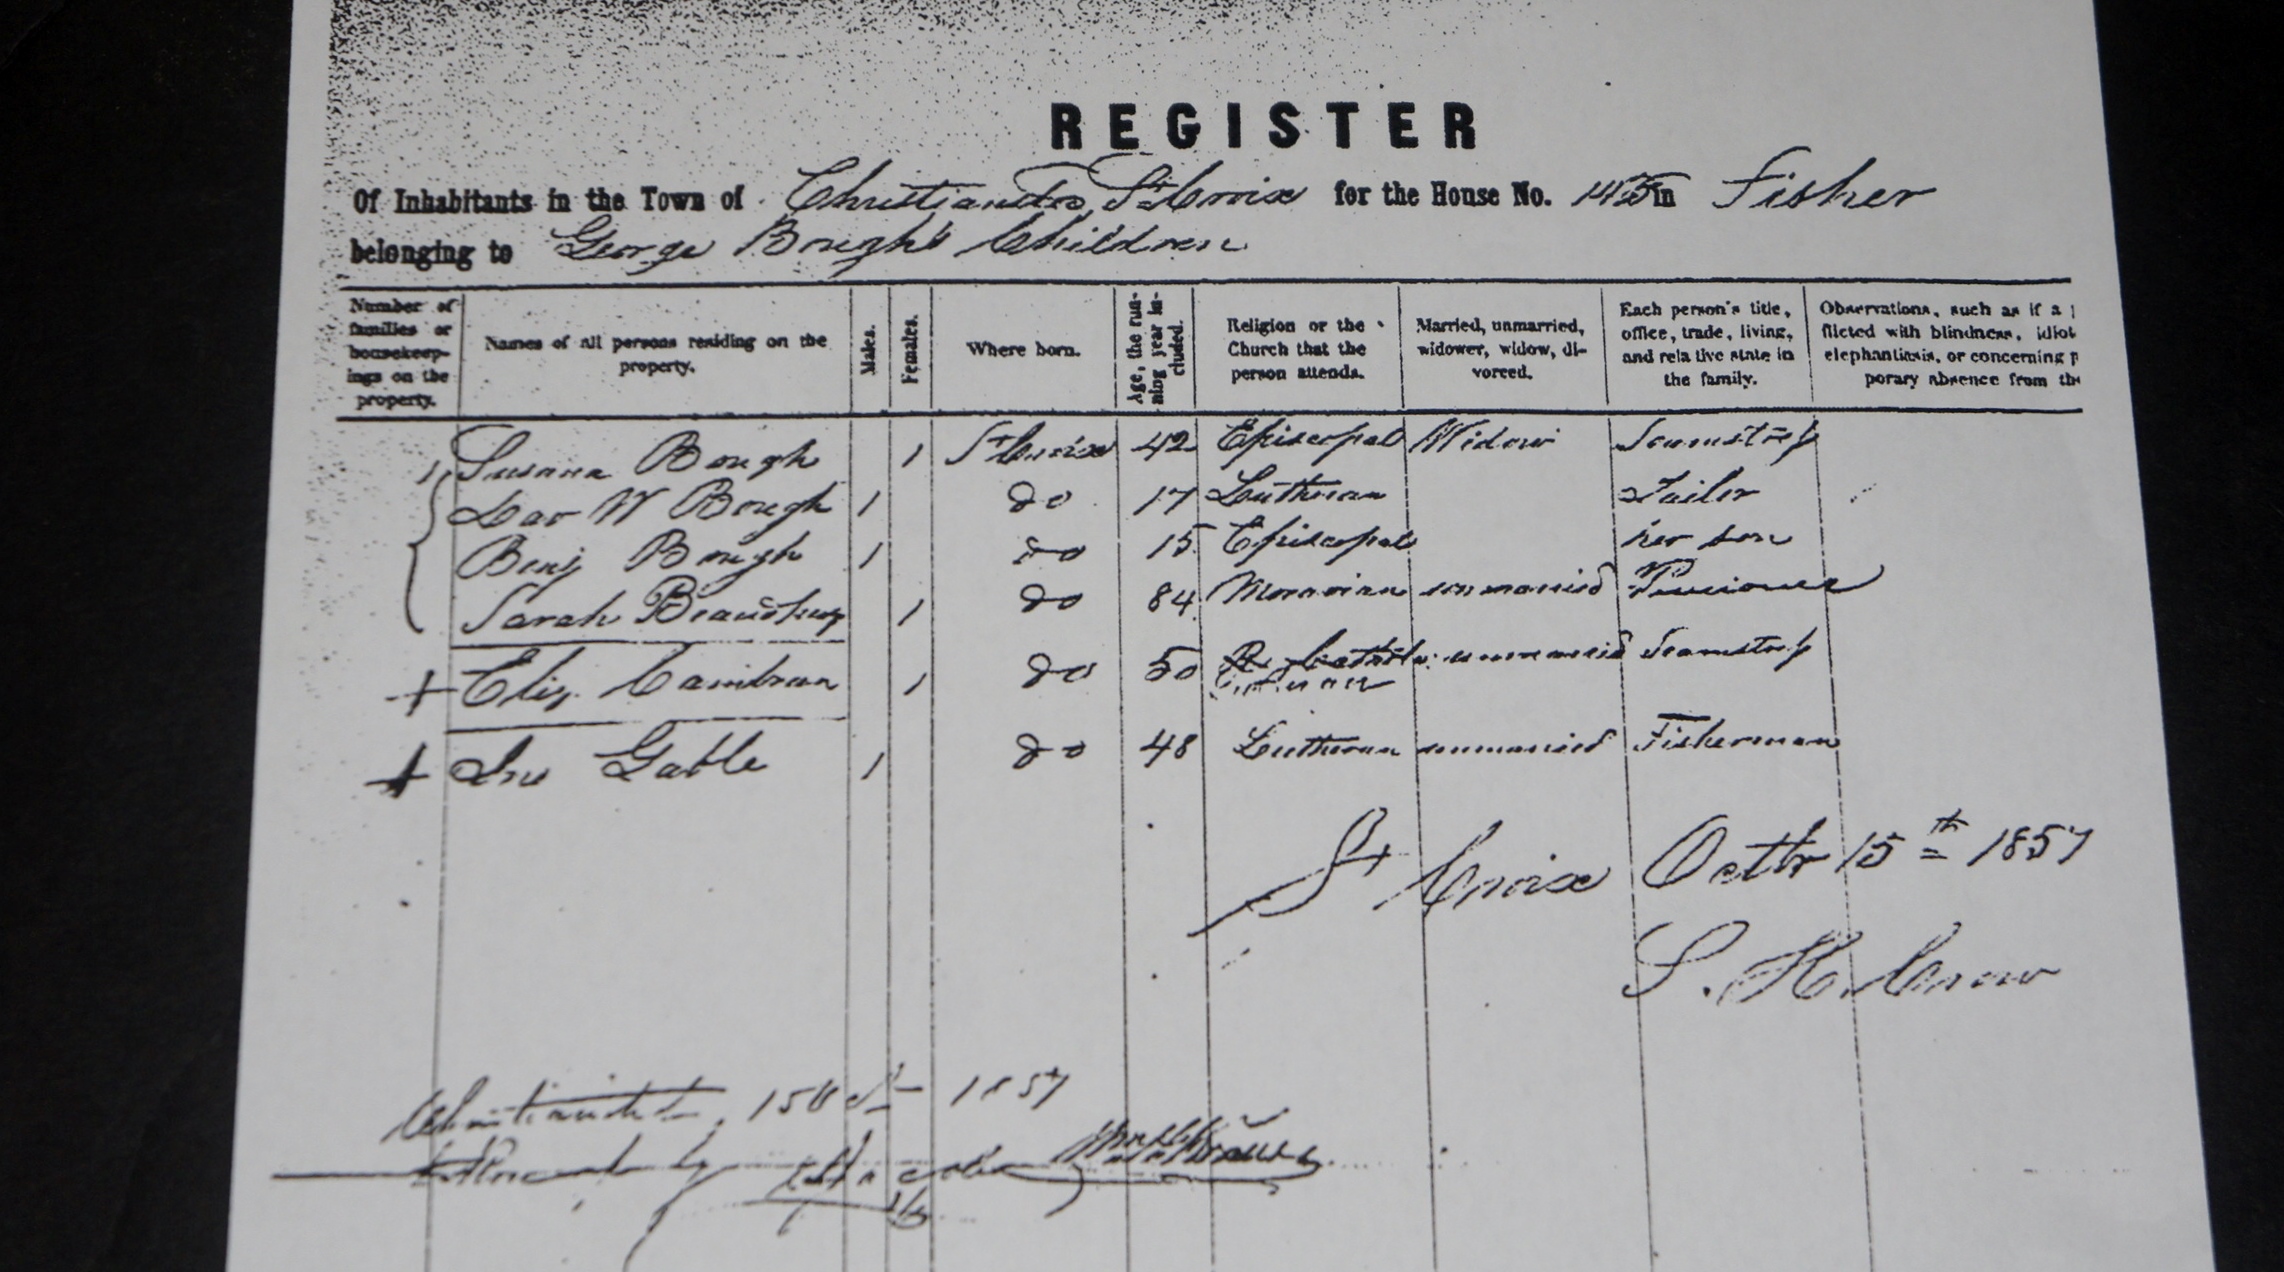 REGISTER
Of Inhabitants in the Town of Christiansted St Croix for the House No. in Fisher
belonging to George Bough's Children
Number of families or housekeep- ings on the property.
Names of all persons residing on the property.
Males.
Females.
Where born.
Age, the run- ning year in- cluded.
Religion or the Church that the person attends.
Married, unmarried, widower, widow, di- vorced.
Each person's title, office, trade, living, and relative state in the family.
Observations, such as if a
flicted with blindness, idiot
elephantiasis, or concerning p
porary absence from the
Susana Bough 1 St Croix 42 Episcopal Widow Seamstress
W Bough 1 do 17 Lutheran Tailor
Benj Bough 1 do 15 Episcopal her son
Sarah 1 do 84 Moravian unmarried
Eliz. 1 do 50 unmarried Seamstress
Gable 1 do 48 Lutheran unmarried Fisherman
St Croix Octbr 15th 1857
S. H.
1857